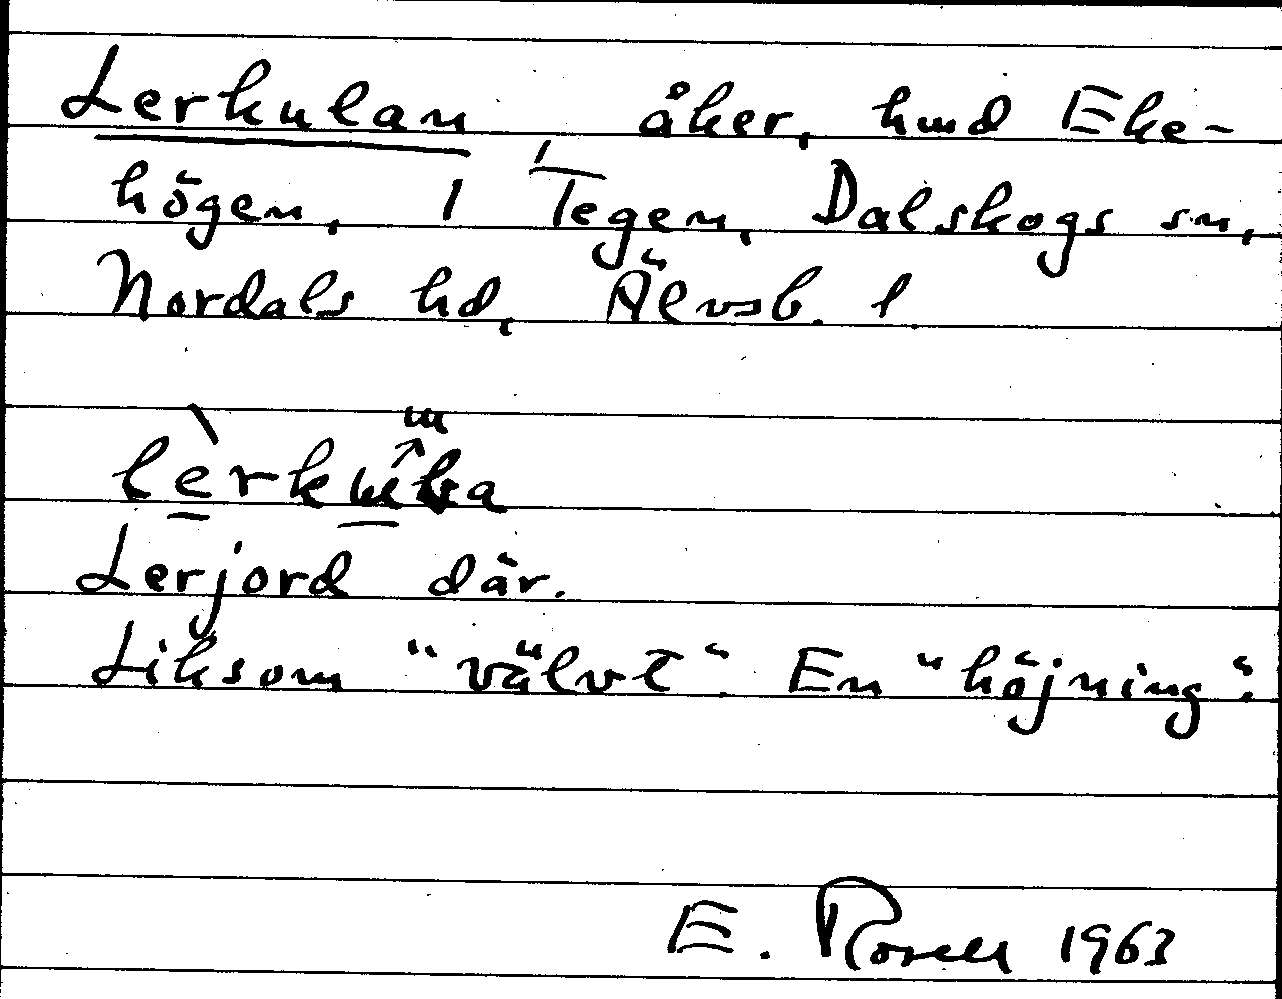 Lerkulan åker, hmd Eke-
högen, 1 Tegen, Dalskogs sn,
Nordals hd, Älvsb. l.
Lerjord där.
Liksom "välvt". En "höjning".
E. Rosell 1963